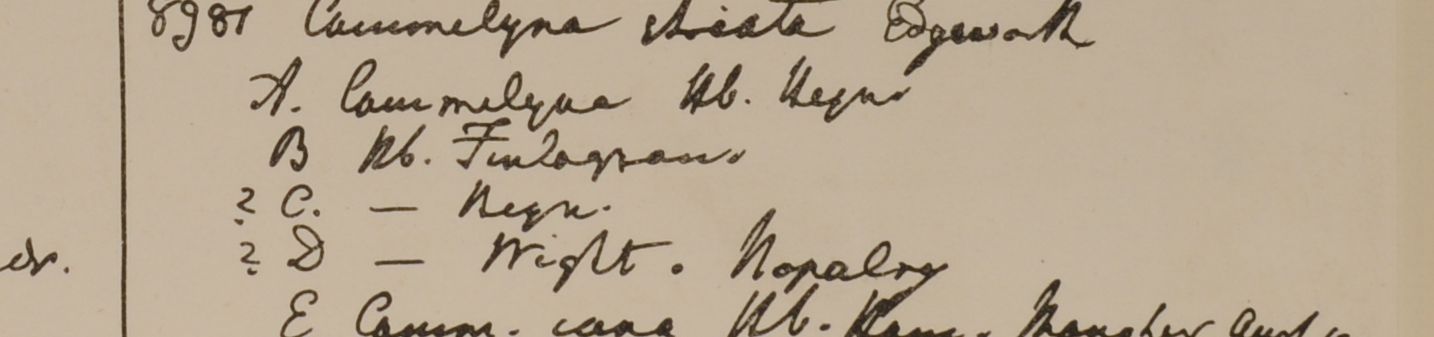 8981 Commelyna striata Edgeworth
A. Commelyna Hb. Heyn.
B Hb. Finlayson.
? C. — Heyn.
dr. ? D — Wight. Nopalry
E Comm. cana Hb. Ham.